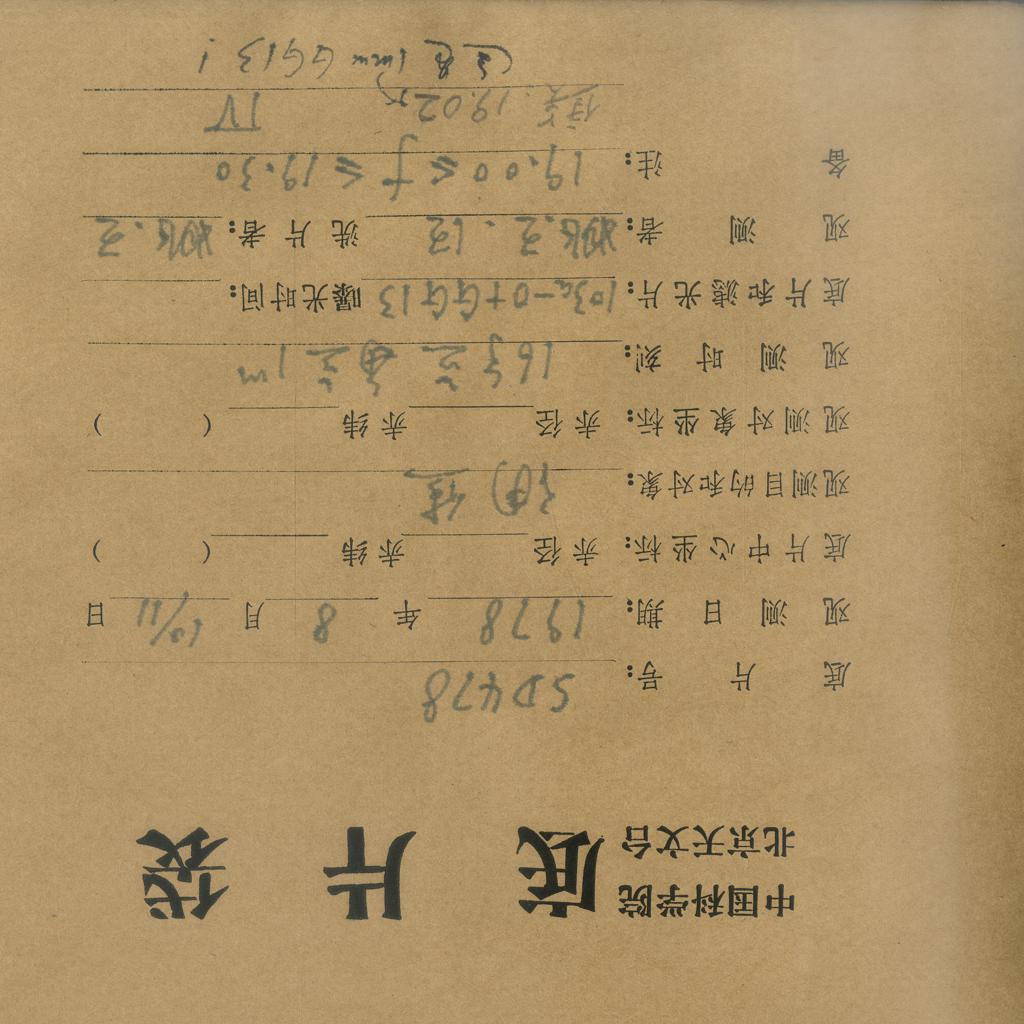 中国科学院
北京天文台
底片袋
底片号: SD478
观测日期: 1978年8月10/11日
底片中心坐标: 赤经 赤纬 ( )
观测目的和对象:
观测对象坐标: 赤经 赤纬 ( )
观测时刻: 16 1m
底片和滤光片: 103a-O+GG13 曝光时间:
观测者: 洗片者:
备注: 19.00 ≤ f ≤ 19.30
19.02 IV
1mm GG13!